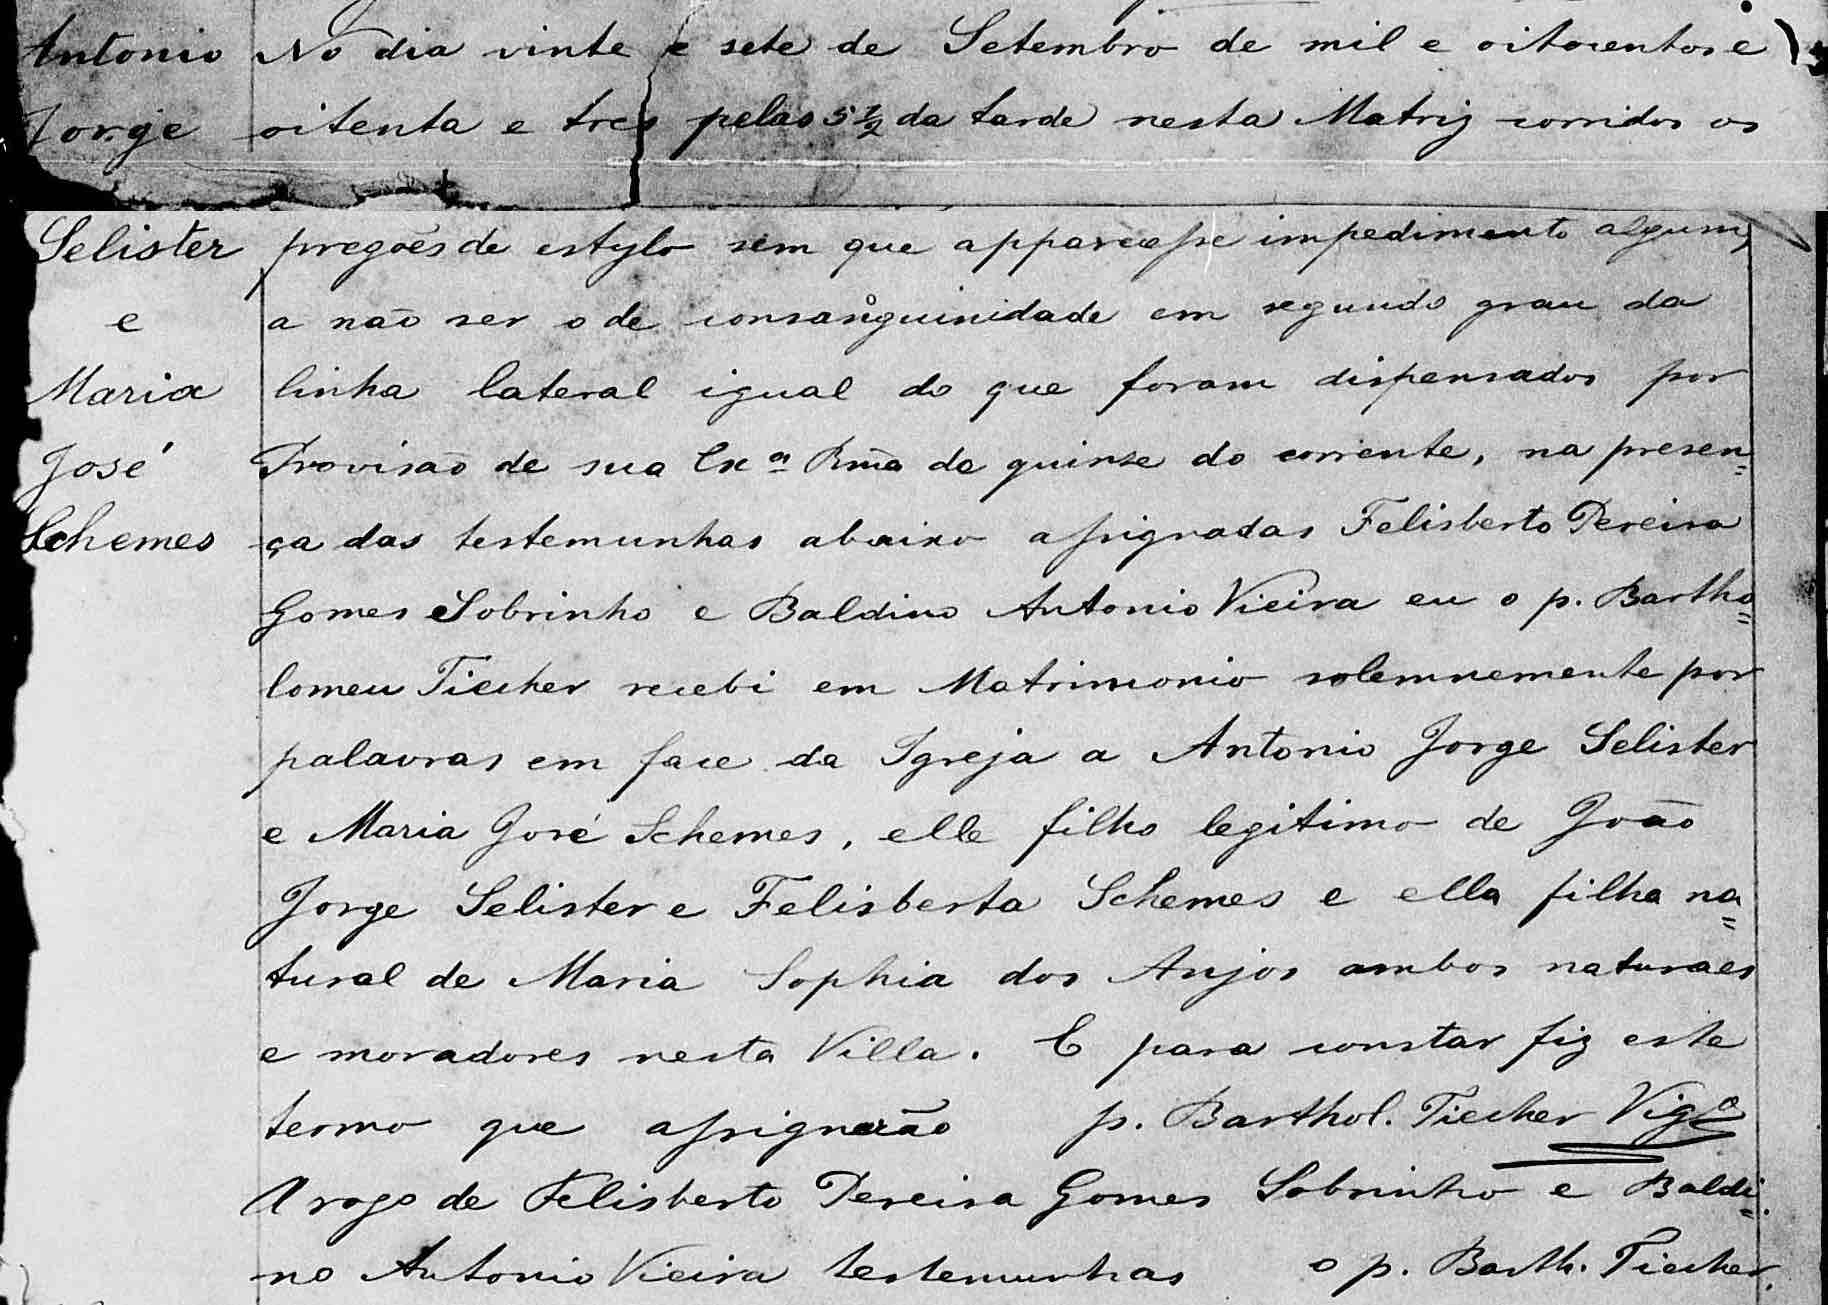 Antonio No dia vinte e sete de Setembro de mil e oitocentos e
Jorge oitenta e tres pelas 5 1/2 da tarde nesta Matriz corridos os
Selister pregões de estylo sem que apparecesse impedimento algum,
e a não ser o de consanguinidade em segundo grau da
Maria linha lateral igual do que foram dispensados por
José Provisão de sua Exª Rmã de quinze do corrente, na presen=
Schemes ça das testemunhas abaixo assignadas Felisberto Pereira
Gomes Sobrinho e Baldino Antonio Vieira eu o p. Bartho=
lomeu Tiecher recebi em Matrimonio solemnemente por
palavras em face da Igreja a Antonio Jorge Selister
e Maria José Schemes, elle filho legitimo de João
Jorge Selister e Felisberta Schemes e ella filha na=
tural de Maria Sophia dos Anjos ambos naturaes
e moradores nesta Villa. E para constar fiz este
termo que assignarão p. Barthol. Tiecher Vigº
A rogo de Felisberto Pereira Gomes Sobrinho e Baldi=
no Antonio Vieira testemunhas o p. Barth. Tiecher.